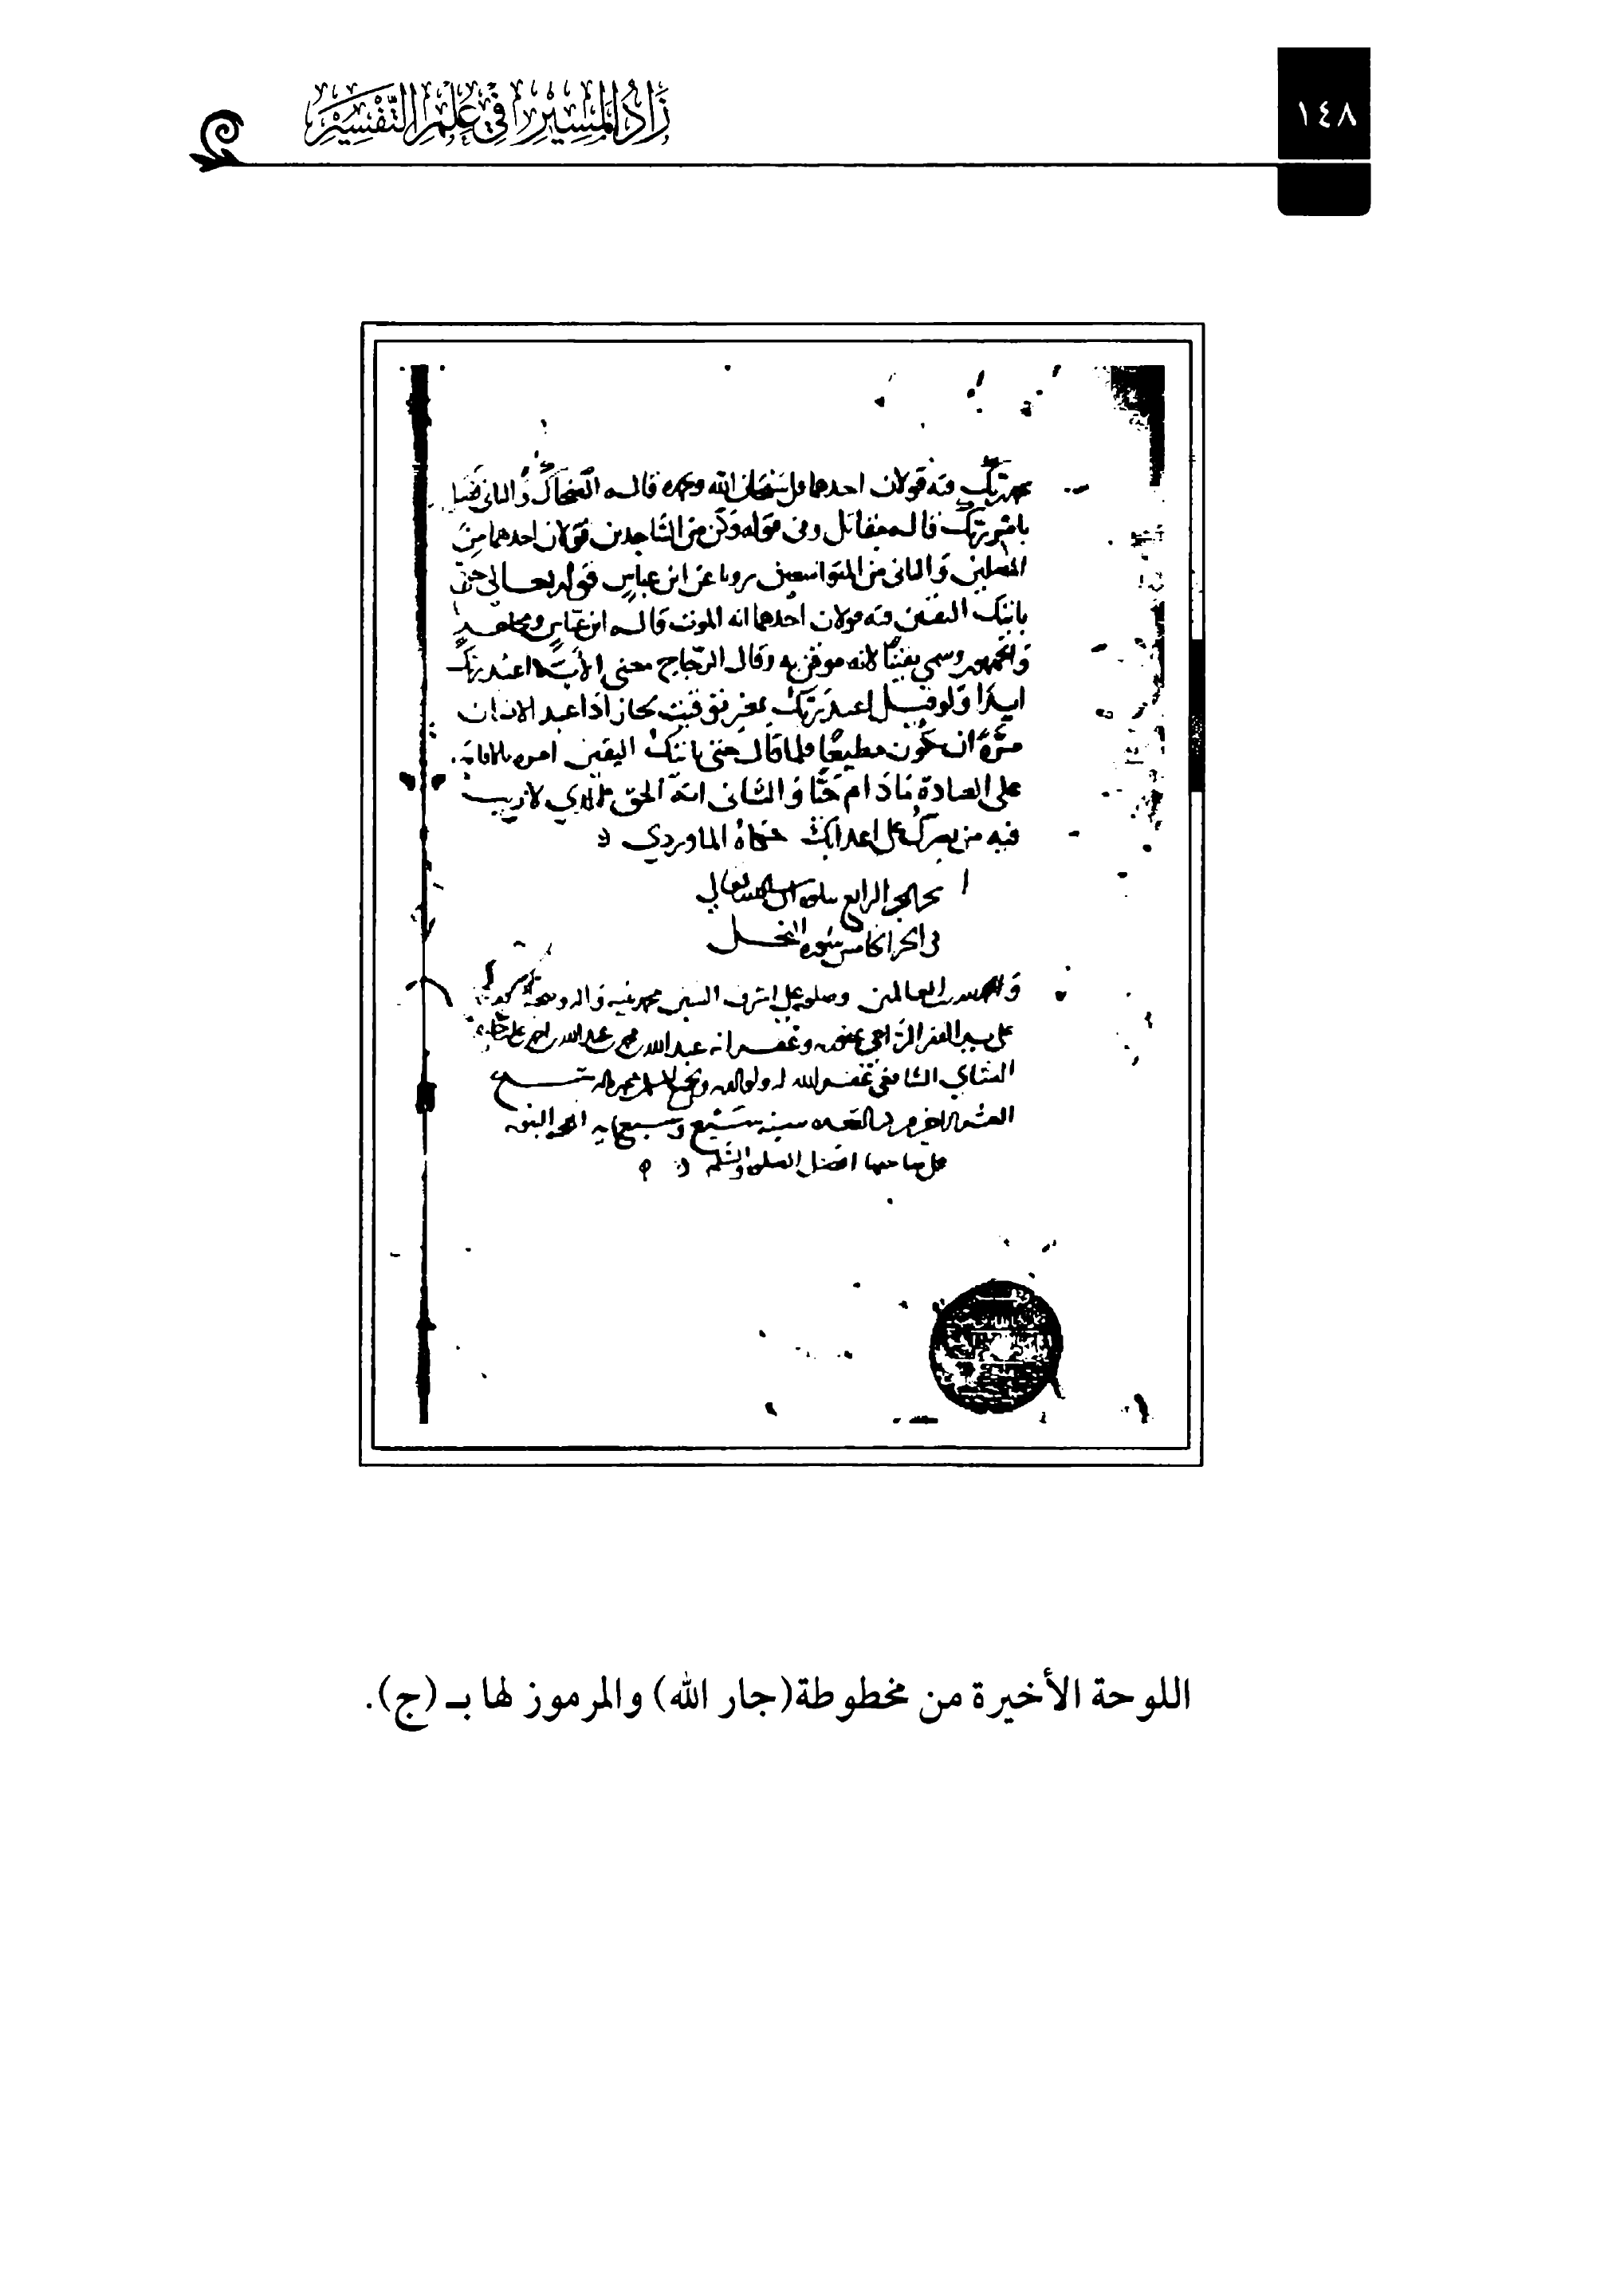 ١٤٨
زَادُ المَسِيْر فِي عِلْمِ التَّفْسِيْر
بحمد ربك وفيه قولان احدهما قل سبحان الله وبحمده قاله الضحاك والثاني فصل
بامر ربك قاله مقاتل وفي قوله وكن من الساجدين قولان احدهما من
المصلين والثاني من المتواضعين رويا عن ابن عباس قوله تعالى حتى
ياتيك اليقين فيه قولان احدهما انه الموت قاله ابن عباس ومجاهد
والجمهور وسمي يقينا لانه موقن به وقال الزجاج معنى الآية اعبد ربك
ابدا ولو قيل اعبد ربك بغير توقيت لجاز اذا عبد الانسان
مرة ان يكون مطيعا فلما قال حتى ياتيك اليقين امره بالاقامة
على العبادة مادام حيا والثاني انه الحق الذي لا ريب
فيه من نصرك على اعدائك حكاه الماوردي
الرابع تعالى
الخامس سورة النحل
والحمد لله رب العالمين وصلوته على اشرف محمد نبيه واله وصحبه
على يد الفقير الراجي عفو وغفرانه عبدالله بن محمد بن عبدالله بن احمد بن علي
الشافعي غفر الله له ولوالديه
القعدة سنة وسبع النبويه
على صاحبها افضل الصلوة والسلم
اللوحة الأخيرة من مخطوطة(جار الله) والمرموز لها بـ (ج).